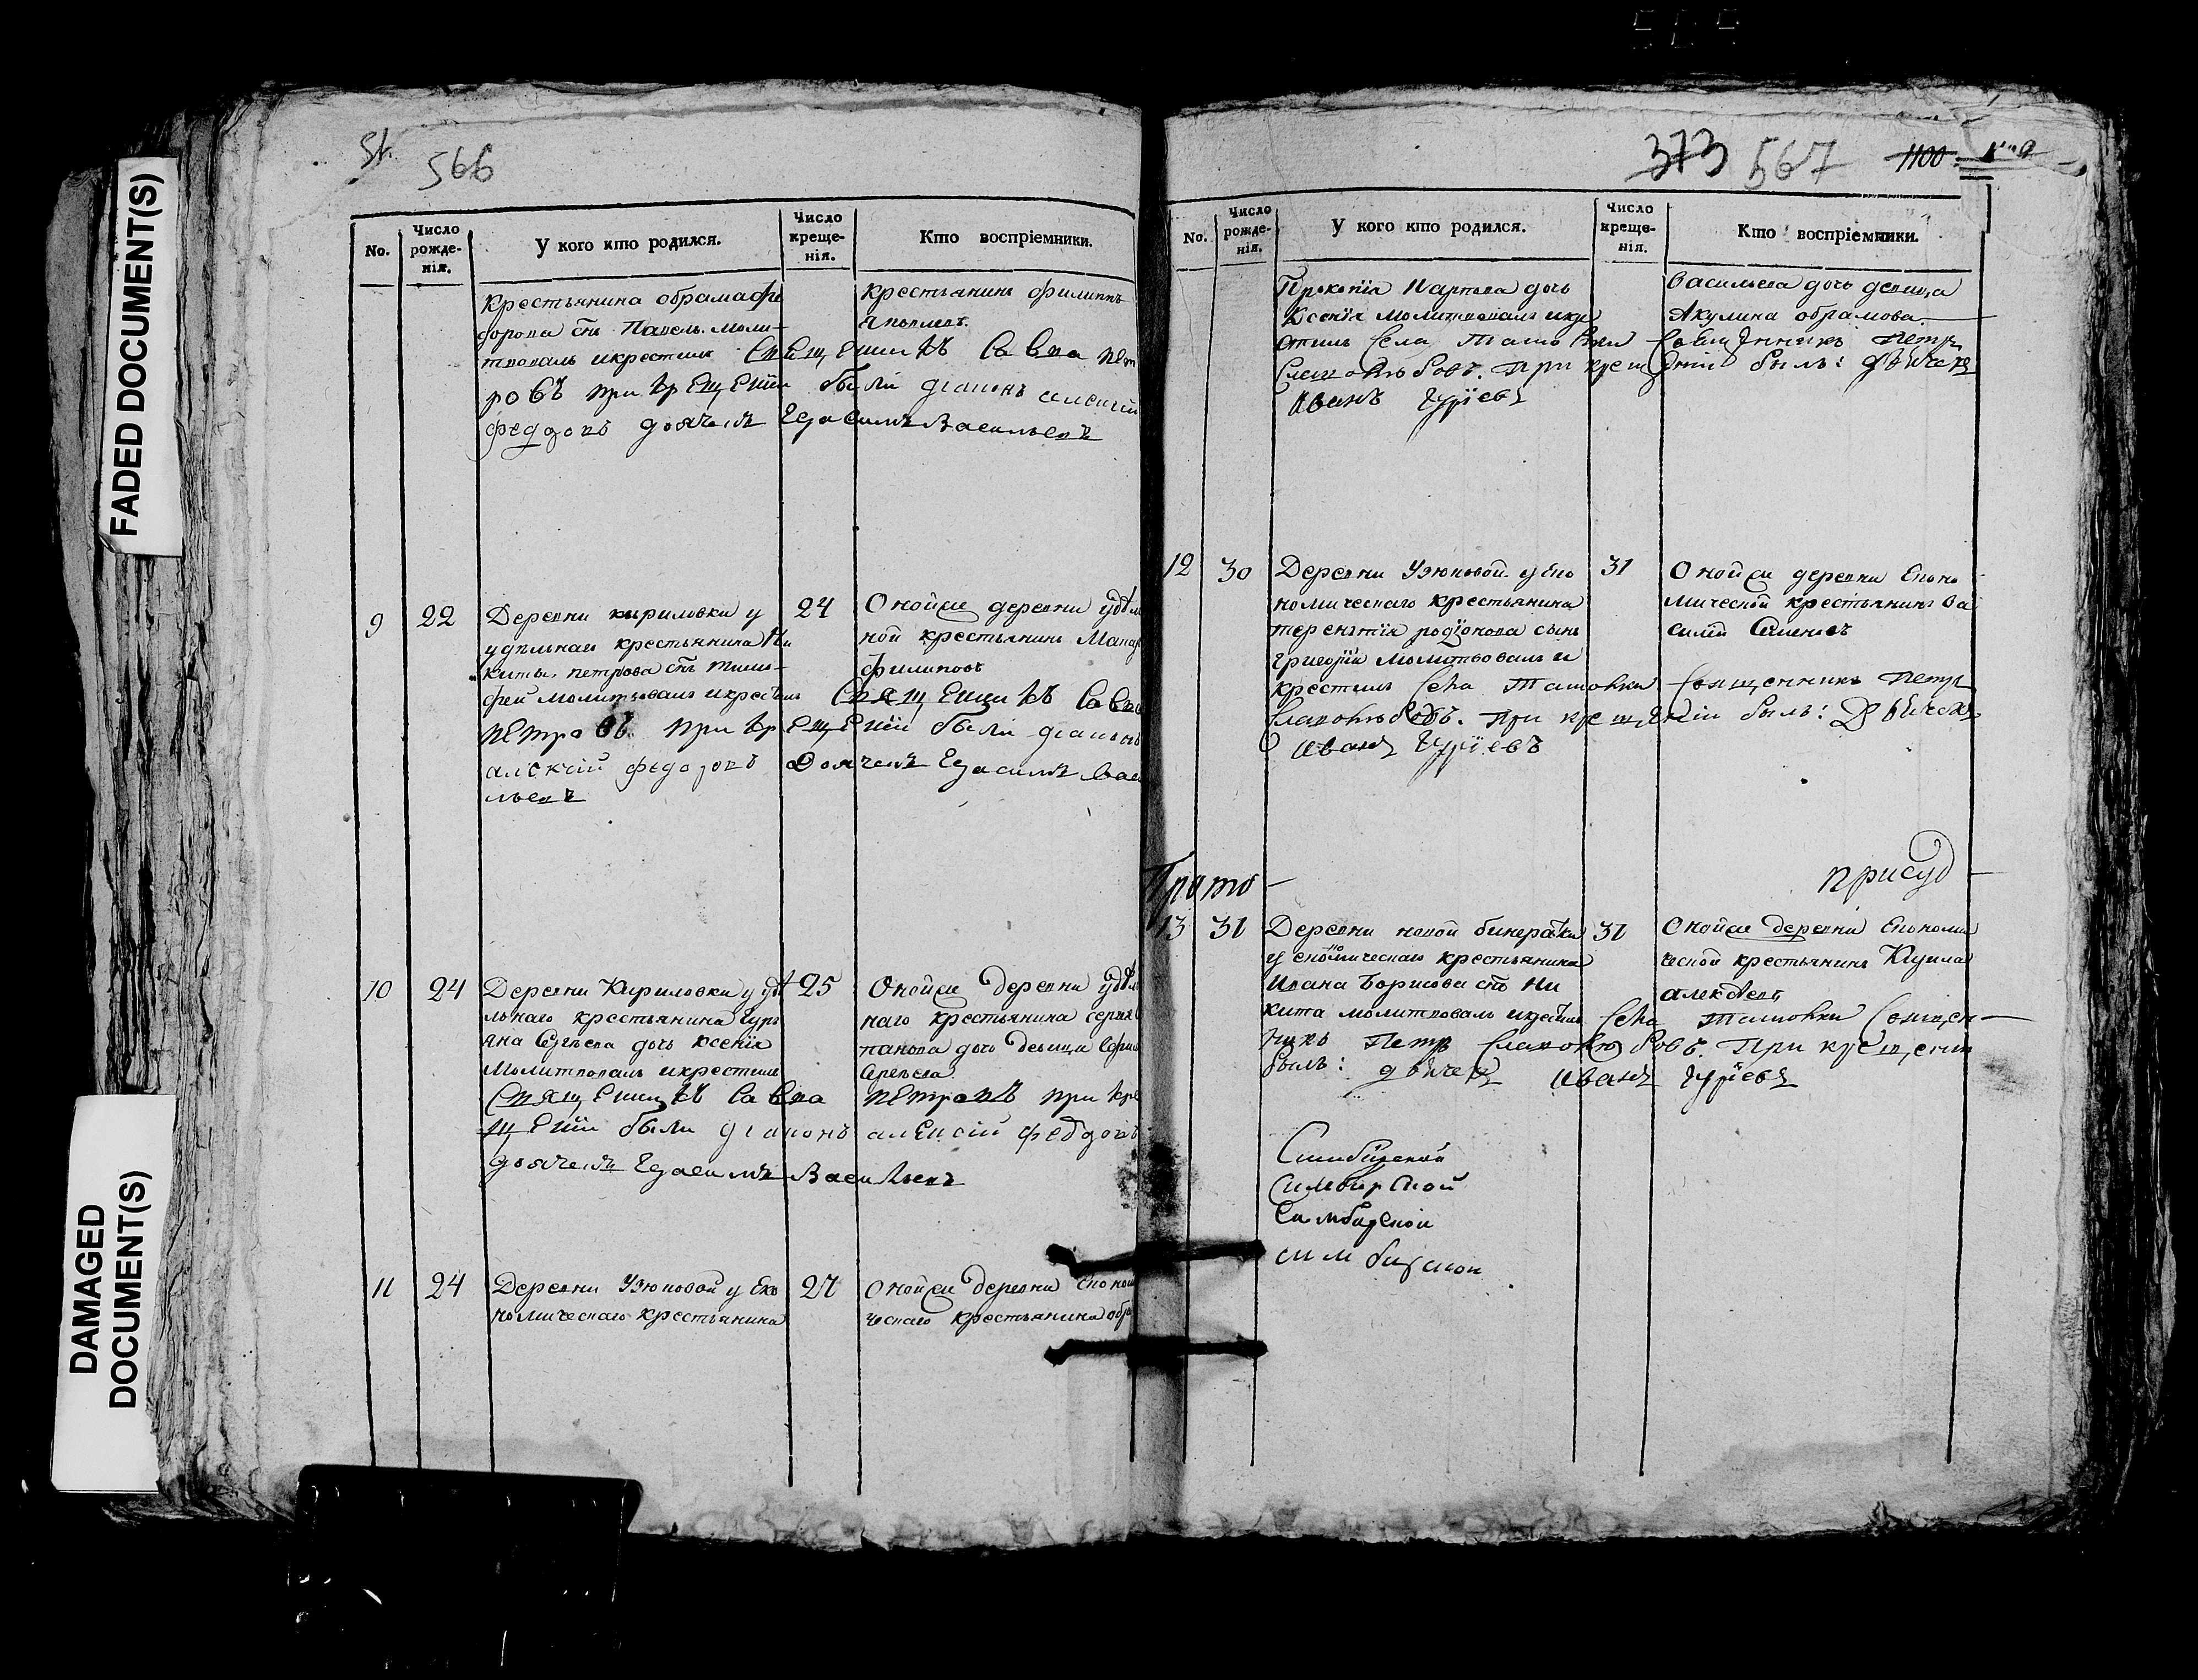 FADED DOCUMENT(S)
DAMAGED
DOCUMENT(S)
566
No.
Число
рожде-
нія.
У кого кто родился.
Число
креще-
нія.
Кто воспріемники.
крестьянина обрама фе
дорова снъ Павелъ. моли-
твовалъ икрестилъ Священникъ Савва пет
ровъ при крещеніи были діаконъ алексій
федоровъ дьячекъ Герасимъ Васильевъ
крестьянинъ филиппъ
яковлевъ.
9
22
Деревни кириловки у
удѣльнаго крестьянина Ни
киты петрова снъ тимо-
фей молитвовалъ икрестилъ Священникъ Савва
петровъ при крещеніи были діаконъ
алексій федоровъ дьячекъ Герасимъ Васи
льевъ
24
Онойже деревни удѣл
ной крестьянинъ Макар
филиповъ
10
24
Деревни Кириловки у удѣ
льнаго крестьянина Гурь
яна Сергѣева дочь Ксенія
Молитвовалъ икрестилъ
Священникъ Савва петровъ при кре
щеніи были діаконъ алексій федоровъ
дьячекъ Герасимъ Васильевъ
25
Онойже деревни удѣл
наго крестьянина сергѣя
дочь девица
Сергѣева
11
24
Деревни Узюковой у Еко
номическаго крестьянина
27
Онойже деревни Економи
ческаго крестьянина обра
373 567 1100
No.
Число
рожде-
нія.
У кого кто родился.
Число
креще-
нія.
Кто воспріемники.
Прокопія Карпова дочь
Ксенія молитвовалъ икре
стилъ Села Ташовки Священникъ Петръ
Слѣповъ. При крещеніи былъ: дьячекъ
Иванъ Гуріевъ
Васильева дочь девица
Акулина обрамова
12
30
Деревни Узюковой у Еко
номическаго крестьянина
терентія родіонова сынъ
Григорій молитвовалъ и
крестилъ Села Ташовки Священникъ Петръ
При крещеніи былъ: Дьячекъ
Иванъ Гуріевъ
31
Онойже деревни Еконо
мической крестьянинъ Ва
силій Семеновъ
присуд
13
31
Деревни новой бинератки
у економическаго крестьянина
Ивана Борисова снъ Ни
кита молитвовалъ икрестилъ Села Ташовки Священ
никъ Петръ При крещеніи
былъ: дьячекъ Иванъ Гуріевъ
31
Онойже деревни Економи
ческой крестьянинъ
алексѣевъ
Симбирской
Симбирской
Симбирской
симбирской